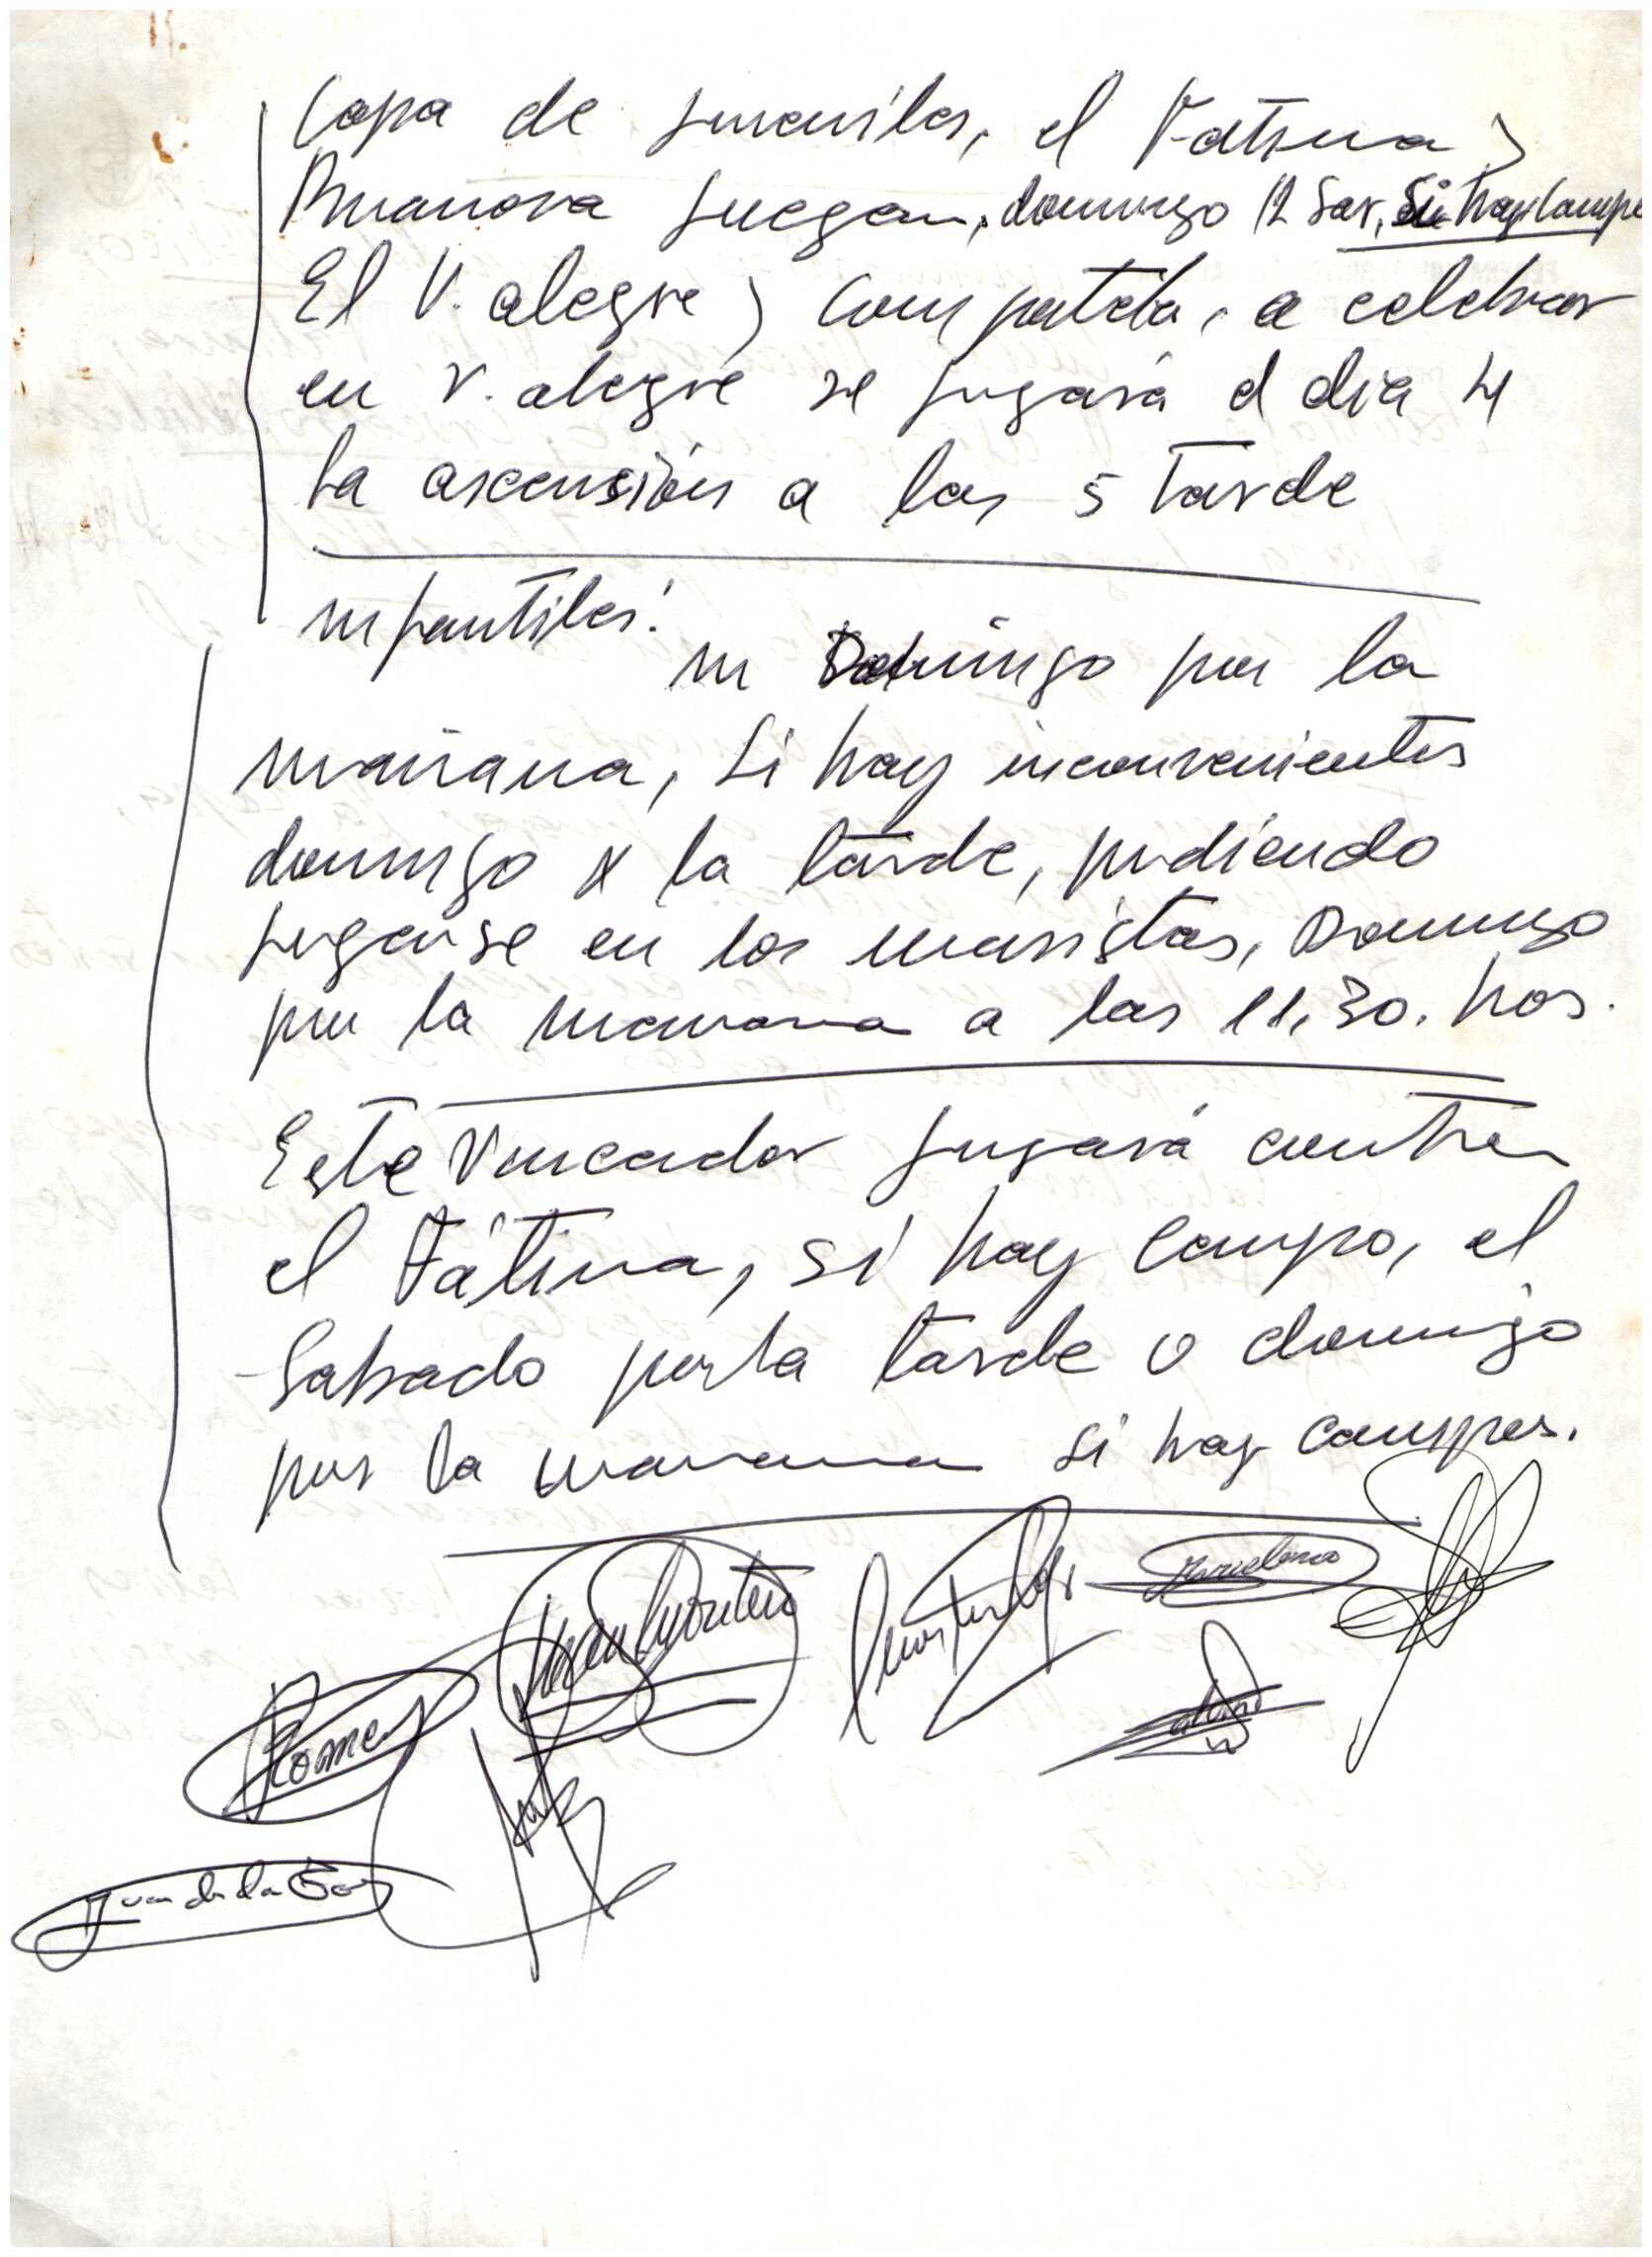 Copa de juveniles, el Fatima y
Buanova juegan, domingo 12 Sar, Si hay Campo
El V. alegre y Compatela, a celebrar
en V. alegre se jugará el dia 4
la ascensión a las 5 tarde
infantiles:
in Domingo por la
mañana, Si hay inconvenientes
domingo x la tarde, pudiendo
jugarse en los maristas, Domingo
por la manana a las 11,30. hos.
Este Vencedor jugará contra
el Fátima, si hay Campo, el
Sabado por la tarde o domingo
por la manana si hay Campos.
Barcelona
Gomez
Juan de la